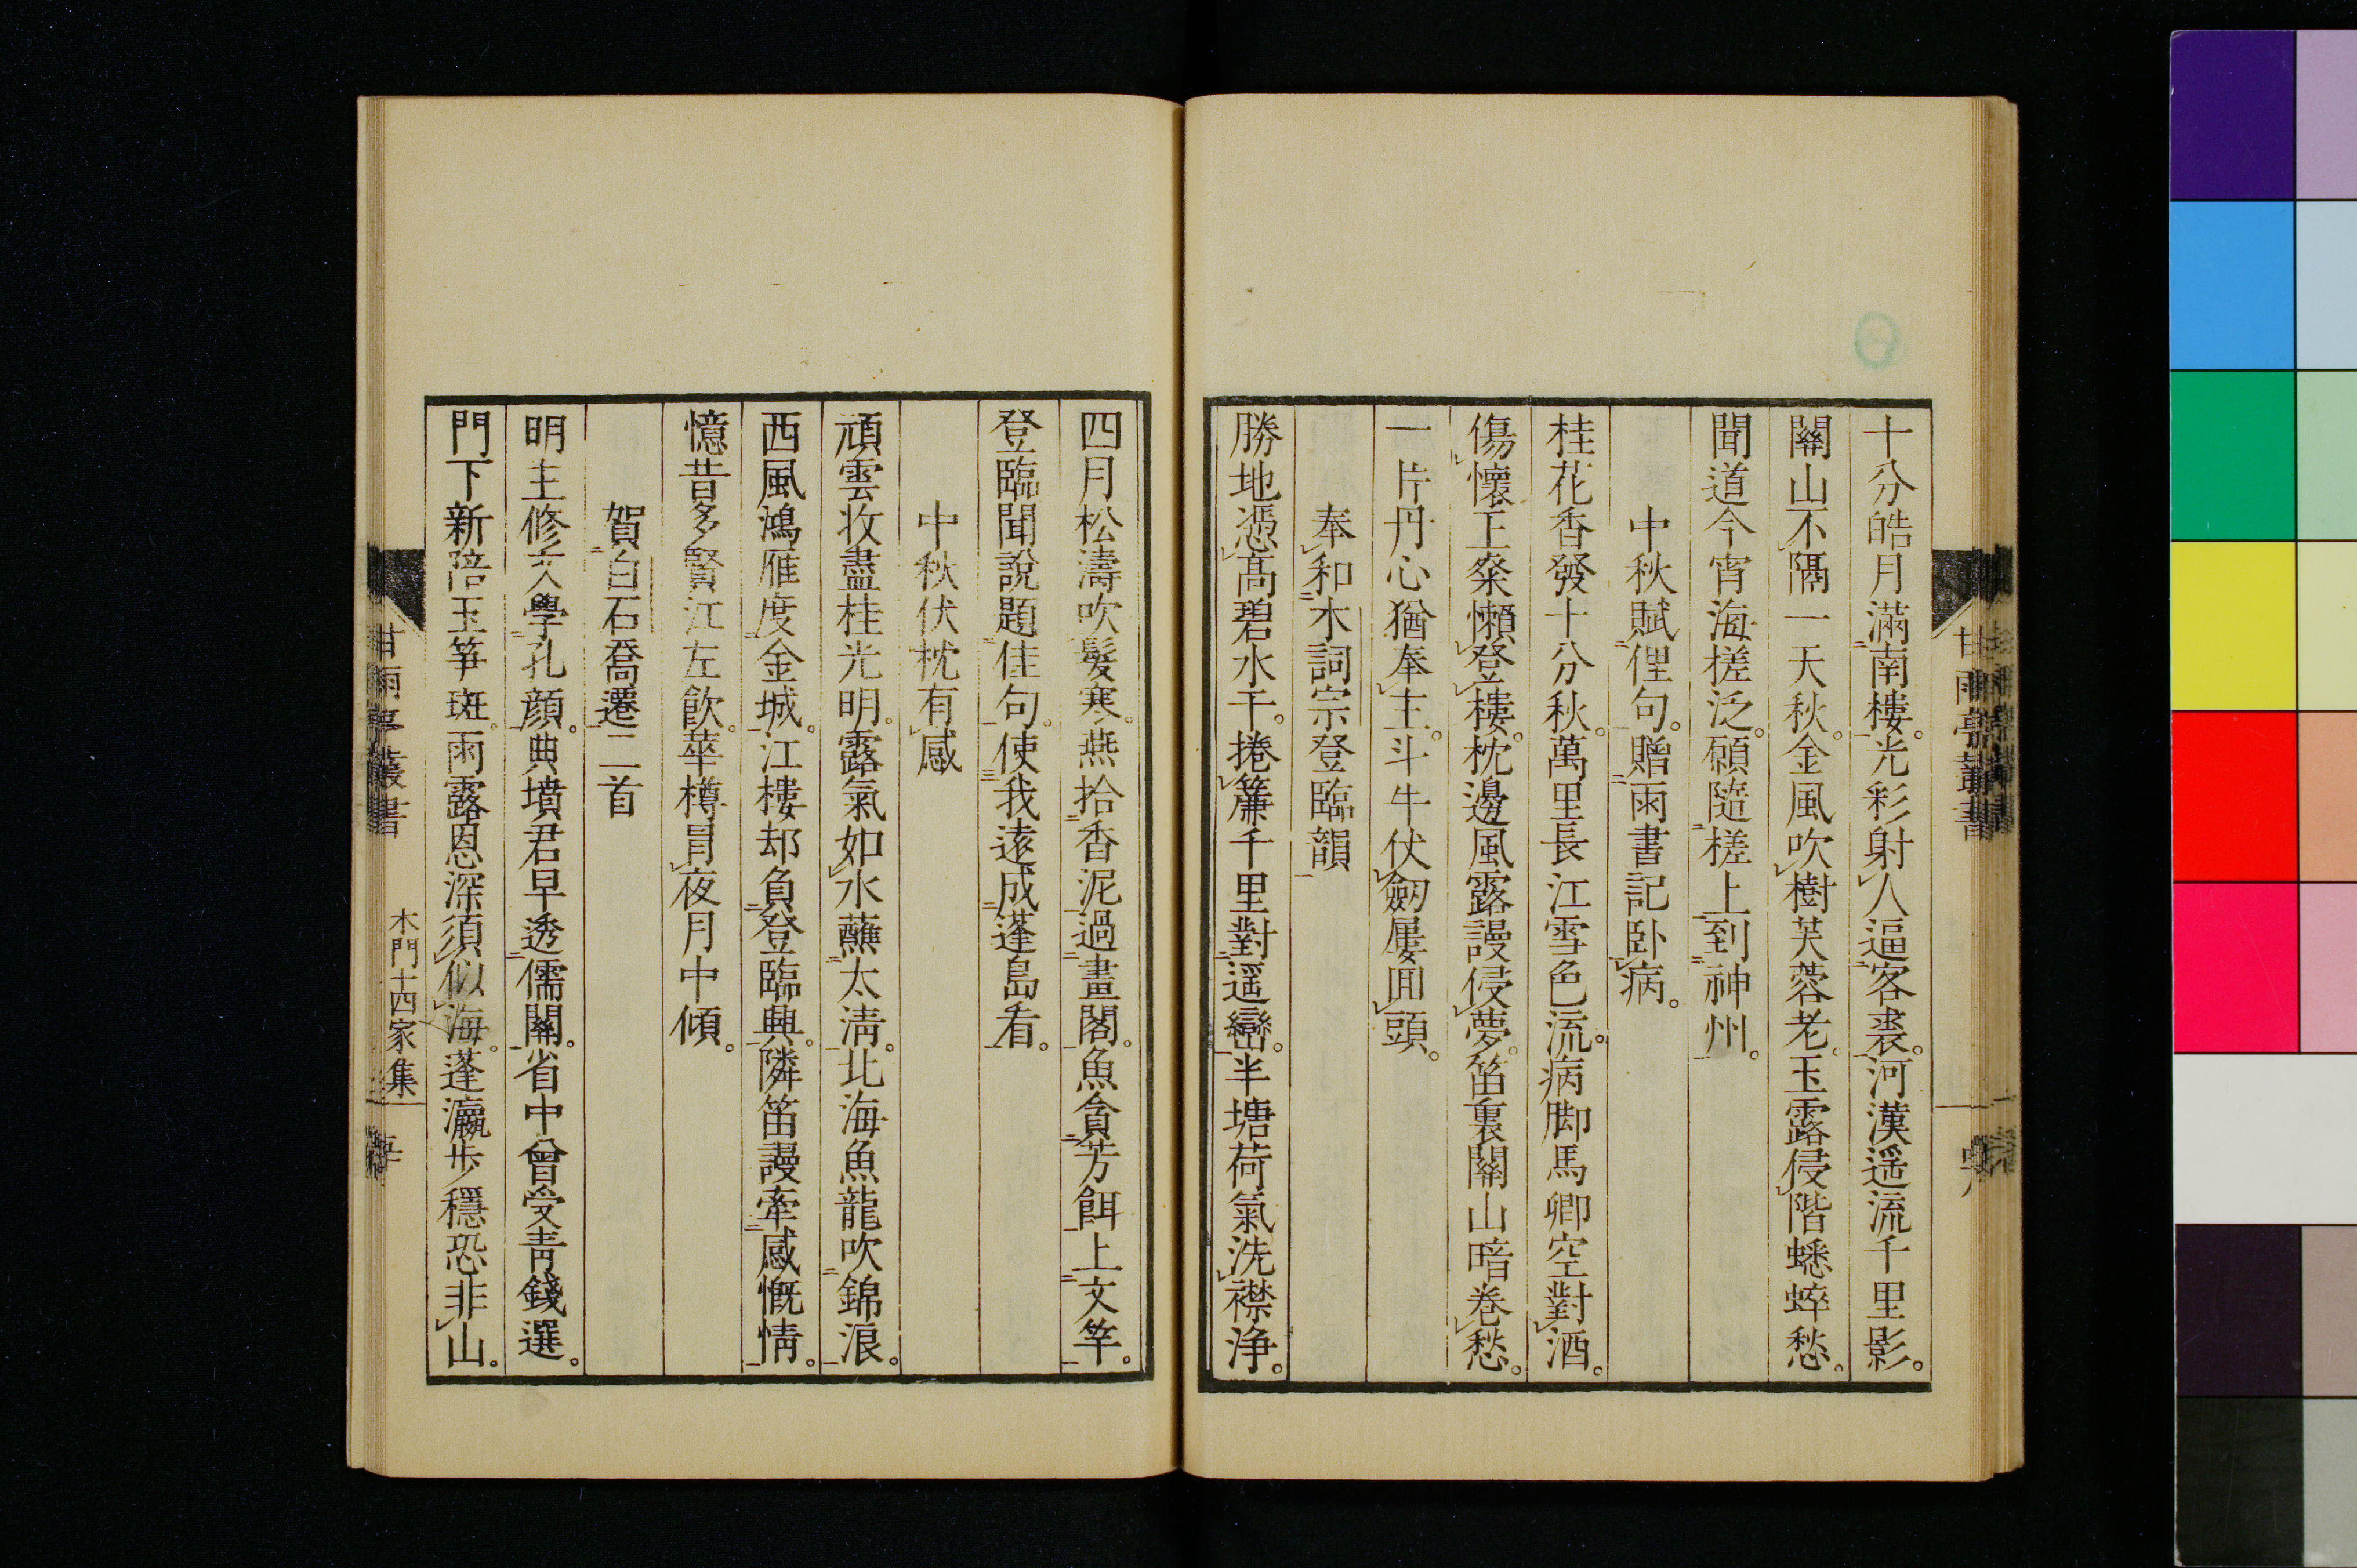 十分皓月滿南樓。光彩射人逼客裘。河漢遥流千里影。
關山不隔一天秋。金風吹樹芙蓉老。玉露侵階蟋蟀愁。
聞道今宵海槎泛。願隨槎上到神州。
中秋賦俚句。贈雨書記卧病。
桂花香發十分秋。萬里長江雪色流。病脚馬卿空對酒。
傷懷王粲懶登樓。枕邊風露謾侵夢。笛裏關山暗卷愁。
一片丹心猶奉主。斗牛伏劔屢囬頭。
奉和木詞宗登臨韻
勝地憑高碧水干。捲簾千里對遥巒。半塘荷氣洗襟浄。
四月松濤吹髮寒。燕拾香泥過畫閣。魚貪芳餌上文竿。
登臨聞說題佳句。使我遠成蓬島看。
中秋伏枕有感
頑雲收盡桂光明。露氣如水蘸太淸。北海魚龍吹錦浪。
西風鴻雁度金城。江樓却負登臨興。隣笛謾牽感慨情。
憶昔多賢江左飮。華樽冐夜月中傾。
賀白石喬遷二首
明主修文學孔顔。典墳君早透儒關。省中曾受靑錢選。
門下新陪玉筝班。雨露恩深須似海。蓬瀛步穩恐非山。
甘雨亭叢書
木門十四家集